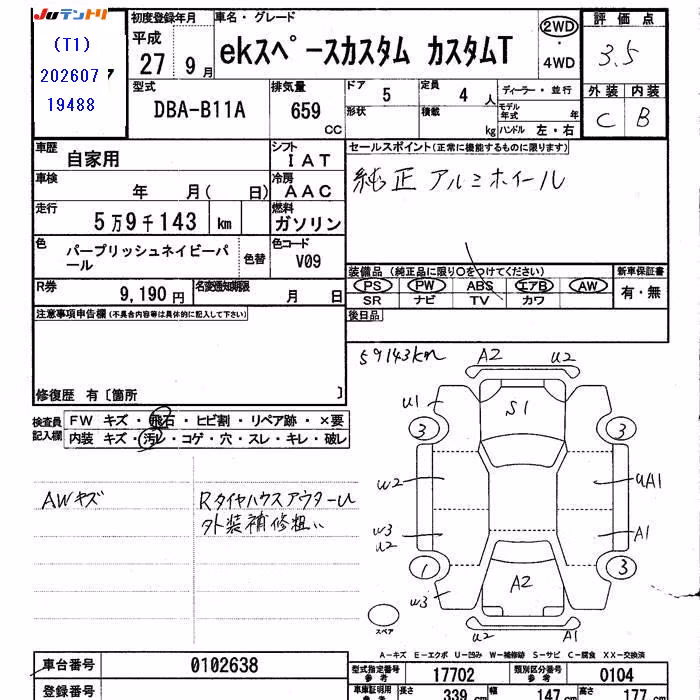 JUテントリ
(T1)
202607
19488
初度登録年月
平成
27 9月
車名・グレード
ekスペースカスタム カスタムT
2WD
・
4WD
評価点
3.5
外装 内装
C B
型式
DBA-B11A
排気量
659
CC
ドア
5
形状
定員
4 人
積載
kg
ディーラー・並行
モデル年式 年
ハンドル 左・右
車歴
自家用
シフト
IAT
車検
年 月( 日)
冷房
AAC
走行
5万9千143 km
燃料
ガソリン
色
パープリッシュネイビーパール
色替
色コード
V09
R券
9,190円
名変通知期限
月 日
セールスポイント(正常に機能するものに限ります)
純正アルミホイール
装備品 (純正品に限り○をつけてください)
PS PW ABS エアB AW
SR ナビ TV カワ
新車保証書
有・無
後日品
注意事項申告欄(不具合内容等は具体的に記入して下さい)
修復歴 有〔箇所 〕
検査員記入欄
FW キズ・飛石・ヒビ割・リペア跡・×要
内装 キズ・汚レ・コゲ・穴・スレ・キレ・破レ
AWキズ
RタイヤハウスアウターU
外装補修粗い
59143km
A2 U2
U1
S1
3 3
W2
UA1
W3
U2
A1
1 3
A2
W3
U2 A1
スペア
A-キズ E-エクボ U-凹み W-補修跡 S-サビ C-腐食 XX-交換済
車台番号
0102638
登録番号
型式指定番号
参考
17702
類別区分番号
参考
0104
車車証明用
参考
長さ
339 cm
幅
147 cm
高さ
177 cm